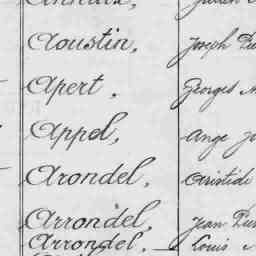 Aoustin, Joseph
Apert, Georges
Appel, Ange
Arondel, Aristide
Arrondel, Jean
Arrondel, Louis